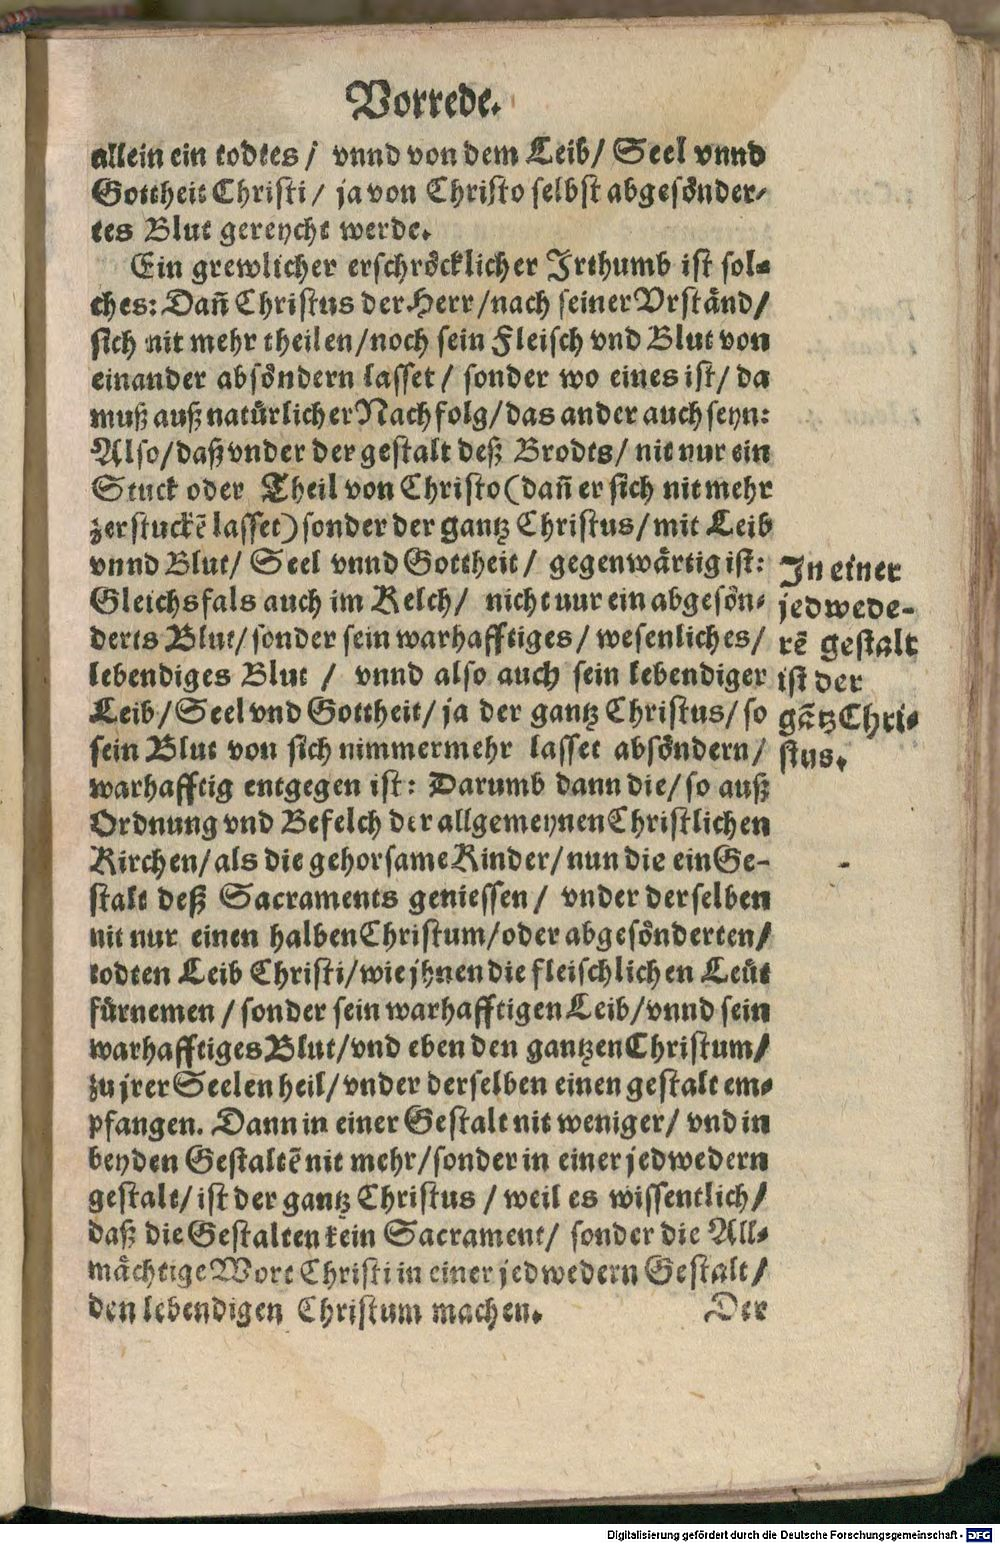 Vorrede.
allein ein todtes / vnnd von dem Leib / Seel vnnd
Gottheit Christi / ja von Christo selbst abgesönder-
tes Blut gereycht werde.
Ein grewlicher erschröcklicher Irthumb ist sol-
ches: Dañ Christus der Herr / nach seiner Vrständ /
sich nit mehr theilen / noch sein Fleisch vnd Blut von
einander absöndern lasset / sonder wo eines ist / da
muß auß natürlicher Nachfolg / das ander auch seyn:
Also / daß vnder der gestalt deß Brodts / nit nur ein
Stuck oder Theil von Christo (dañ er sich nit mehr
zerstuckẽ lasset) sonder der gantz Christus / mit Leib
vnnd Blut / Seel vnnd Gottheit / gegenwärtig ist:
Gleichsfals auch im Kelch / nicht nur ein abgesön-
derts Blut / sonder sein warhafftiges / wesenliches /
lebendiges Blut / vnnd also auch sein lebendiger
Leib / Seel vnd Gottheit / ja der gantz Christus / so
sein Blut von sich nimmermehr lasset absöndern /
warhafftig entgegen ist: Darumb dann die / so auß
Ordnung vnd Befelch der allgemeynen Christlichen
Kirchen / als die gehorsame Kinder / nun die ein Ge-
stalt deß Sacraments geniessen / vnder derselben
nit nur einen halben Christum / oder abgesönderten /
todten Leib Christi / wie jhnen die fleischlichen Leüt
fürnemen / sonder sein warhafftigen Leib / vnnd sein
warhafftiges Blut / vnd eben den gantzen Christum /
zu jrer Seelen heil / vnder derselben einen gestalt em-
pfangen. Dann in einer Gestalt nit weniger / vnd in
beyden Gestaltẽ nit mehr / sonder in einer jedwedern
gestalt / ist der gantz Christus / weil es wissentlich /
daß die Gestalten kein Sacrament / sonder die All-
mächtige Wort Christi in einer jedwedern Gestalt /
den lebendigen Christum machen.
Der
In einer
jedwede-
rẽ gestalt
ist der
gãtz Chri-
stus.
Digitalisierung gefördert durch die Deutsche Forschungsgemeinschaft - DFG